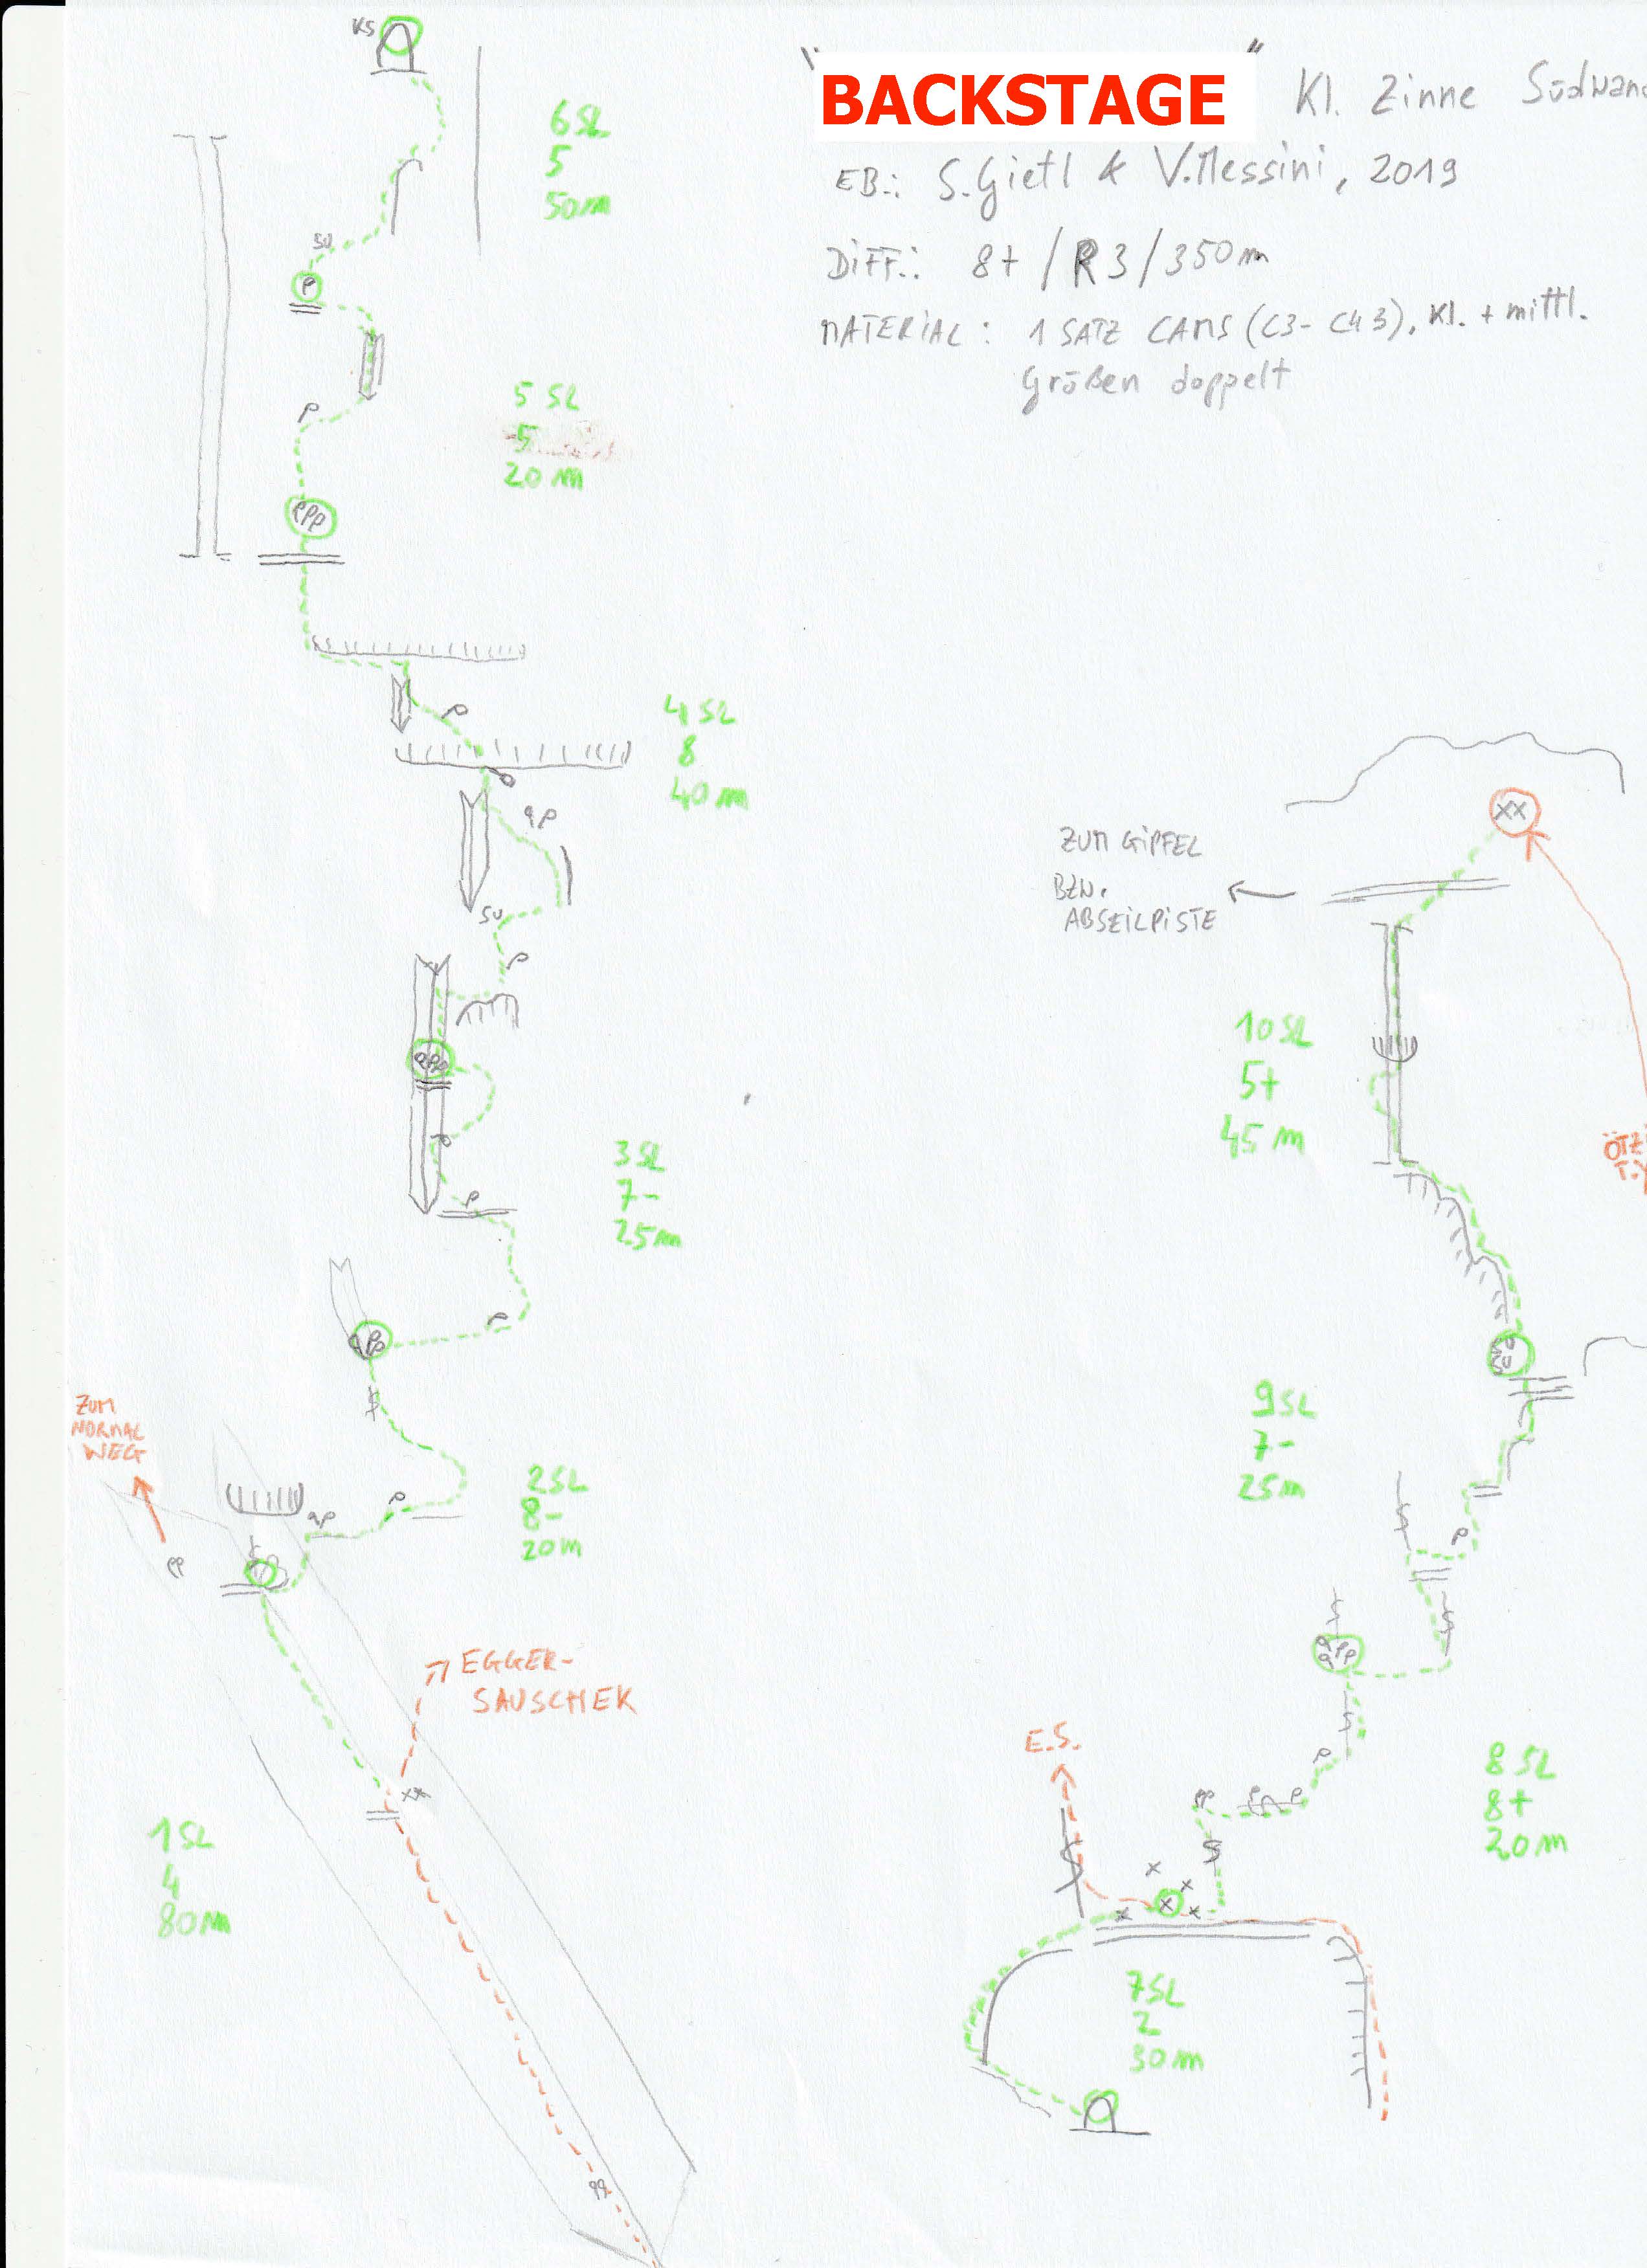 "BACKSTAGE" Kl. Zinne Südwand
EB.: S.Gietl & V.Messini, 2019
DIFF.: 8+ / R3 / 350m
MATERIAL: 1 SATZ CAMS (C3- C4 3), Kl. + mittl.
Größen doppelt
KS
6 SL
5
50m
SU
P
5 SL
5
20 m
P
4 SL
8
40 m
SU
3 SL
7-
25m
ZUM
NORMAL
WEG
2 SL
8-
20m
EGGER-
SAUSCHEK
xx
1 SL
4
80m
xx
ZUM GIPFEL
BZW.
ABSEILPISTE
10 SL
5+
45 m
ÖTZI
9 SL
7-
25m
E.S.
8 SL
8+
20m
7 SL
2
30 m